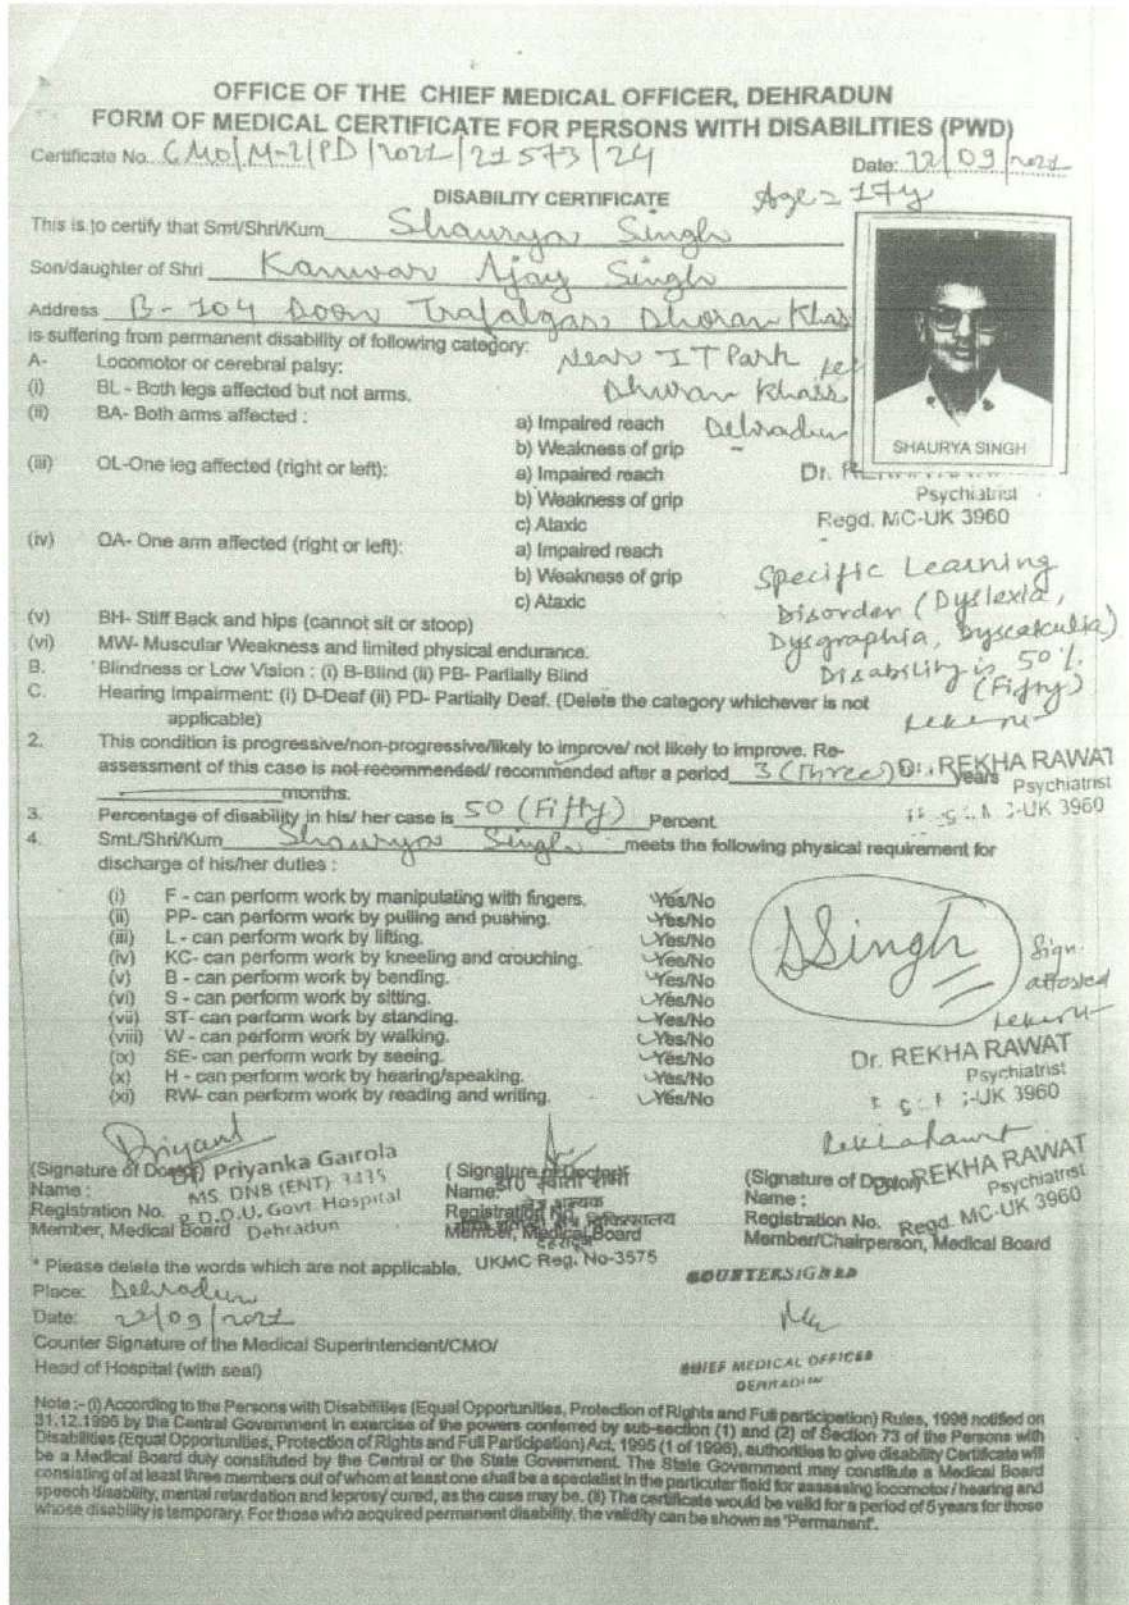 OFFICE OF THE CHIEF MEDICAL OFFICER, DEHRADUN
FORM OF MEDICAL CERTIFICATE FOR PERSONS WITH DISABILITIES (PWD)
Certificate No. CMO/M-2/PD/2021/21573/24
Date: 22/09/2021
DISABILITY CERTIFICATE
Age = 17y
This is to certify that Smt/Shri/Kum Shaurya Singh
Son/daughter of Shri Kanwar Ajay Singh
Address B-104 Doon Trafalgar Dhoran Khas
is suffering from permanent disability of following category: Near IT Park
A- Locomotor or cerebral palsy:
(i) BL - Both legs affected but not arms. Dhoran Khass
(ii) BA- Both arms affected : a) Impaired reach Dehradun
b) Weakness of grip
SHAURYA SINGH
(iii) OL-One leg affected (right or left): a) Impaired reach Dr.
b) Weakness of grip Psychiatrist
c) Ataxic Regd. MC-UK 3960
(iv) OA- One arm affected (right or left): a) Impaired reach
b) Weakness of grip
c) Ataxic
Specific Learning
Disorder (Dyslexia,
Dysgraphia, Dyscalculia)
Disability is 50%.
(Fifty)
(v) BH- Stiff Back and hips (cannot sit or stoop)
(vi) MW- Muscular Weakness and limited physical endurance.
B. Blindness or Low Vision : (i) B-Blind (ii) PB- Partially Blind
C. Hearing Impairment: (i) D-Deaf (ii) PD- Partially Deaf. (Delete the category whichever is not
applicable)
2. This condition is progressive/non-progressive/likely to improve/ not likely to improve. Re-
assessment of this case is not recommended/ recommended after a period 3 (Three) years
months.
Dr. REKHA RAWAT
Psychiatrist
-UK 3960
3. Percentage of disability in his/ her case is 50 (Fifty) Percent
4. Smt./Shri/Kum Shaurya Singh meets the following physical requirement for
discharge of his/her duties :
(i) F - can perform work by manipulating with fingers. Yes/No
(ii) PP- can perform work by pulling and pushing. Yes/No
(iii) L - can perform work by lifting. Yes/No
(iv) KC- can perform work by kneeling and crouching. Yes/No
(v) B - can perform work by bending. Yes/No
(vi) S - can perform work by sitting. Yes/No
(vii) ST- can perform work by standing. Yes/No
(viii) W - can perform work by walking. Yes/No
(ix) SE- can perform work by seeing. Yes/No
(x) H - can perform work by hearing/speaking. Yes/No
(xi) RW- can perform work by reading and writing. Yes/No
SSingh
Sign.
attested
Dr. REKHA RAWAT
Psychiatrist
-UK 3960
(Signature of Doctor) Priyanka Gairola
Name : MS. DNB (ENT) 3435
Registration No. P.D.D.U. Govt. Hospital
Member, Medical Board Dehradun
(Signature of Doctor)
Name:
Registration No.
Member, Medical Board
UKMC Reg. No-3575
(Signature of Doctor) Dr. REKHA RAWAT
Name : Psychiatrist
Registration No. Regd. MC-UK 3960
Member/Chairperson, Medical Board
* Please delete the words which are not applicable.
COUNTERSIGNED
Place: Dehradun
Date: 22/09/2021
Counter Signature of the Medical Superintendent/CMO/
Head of Hospital (with seal)
CHIEF MEDICAL OFFICER
DEHRADUN
Note :- (i) According to the Persons with Disabilities (Equal Opportunities, Protection of Rights and Full participation) Rules, 1996 notified on
31.12.1996 by the Central Government in exercise of the powers conferred by sub-section (1) and (2) of Section 73 of the Persons with
Disabilities (Equal Opportunities, Protection of Rights and Full Participation) Act, 1995 (1 of 1996), authorities to give disability Certificate will
be a Medical Board duly constituted by the Central or the State Government. The State Government may constitute a Medical Board
consisting of at least three members out of whom at least one shall be a specialist in the particular field for assessing locomotor/ hearing and
speech disability, mental retardation and leprosy cured, as the case may be. (ii) The certificate would be valid for a period of 5 years for those
whose disability is temporary. For those who acquired permanent disability, the validity can be shown as 'Permanent'.